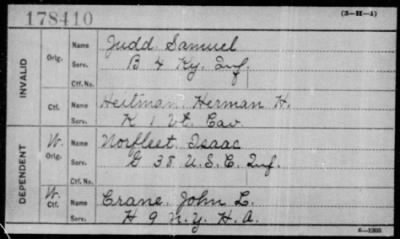 178410 (3—H—4)
INVALID
Orig. Name Judd Samuel
Serv. B 4 Ky. Inf.
Ctf. No.
Ctf. Name Heitman Herman H.
Serv. K 1 Vt. Cav.
DEPENDENT
W. Orig. Name Norfleet Isaac
Serv. G 38 U.S.C. Inf.
Ctf. No.
W. Ctf. Name Crane, John L.
Serv. H 9 N.Y. H.A.